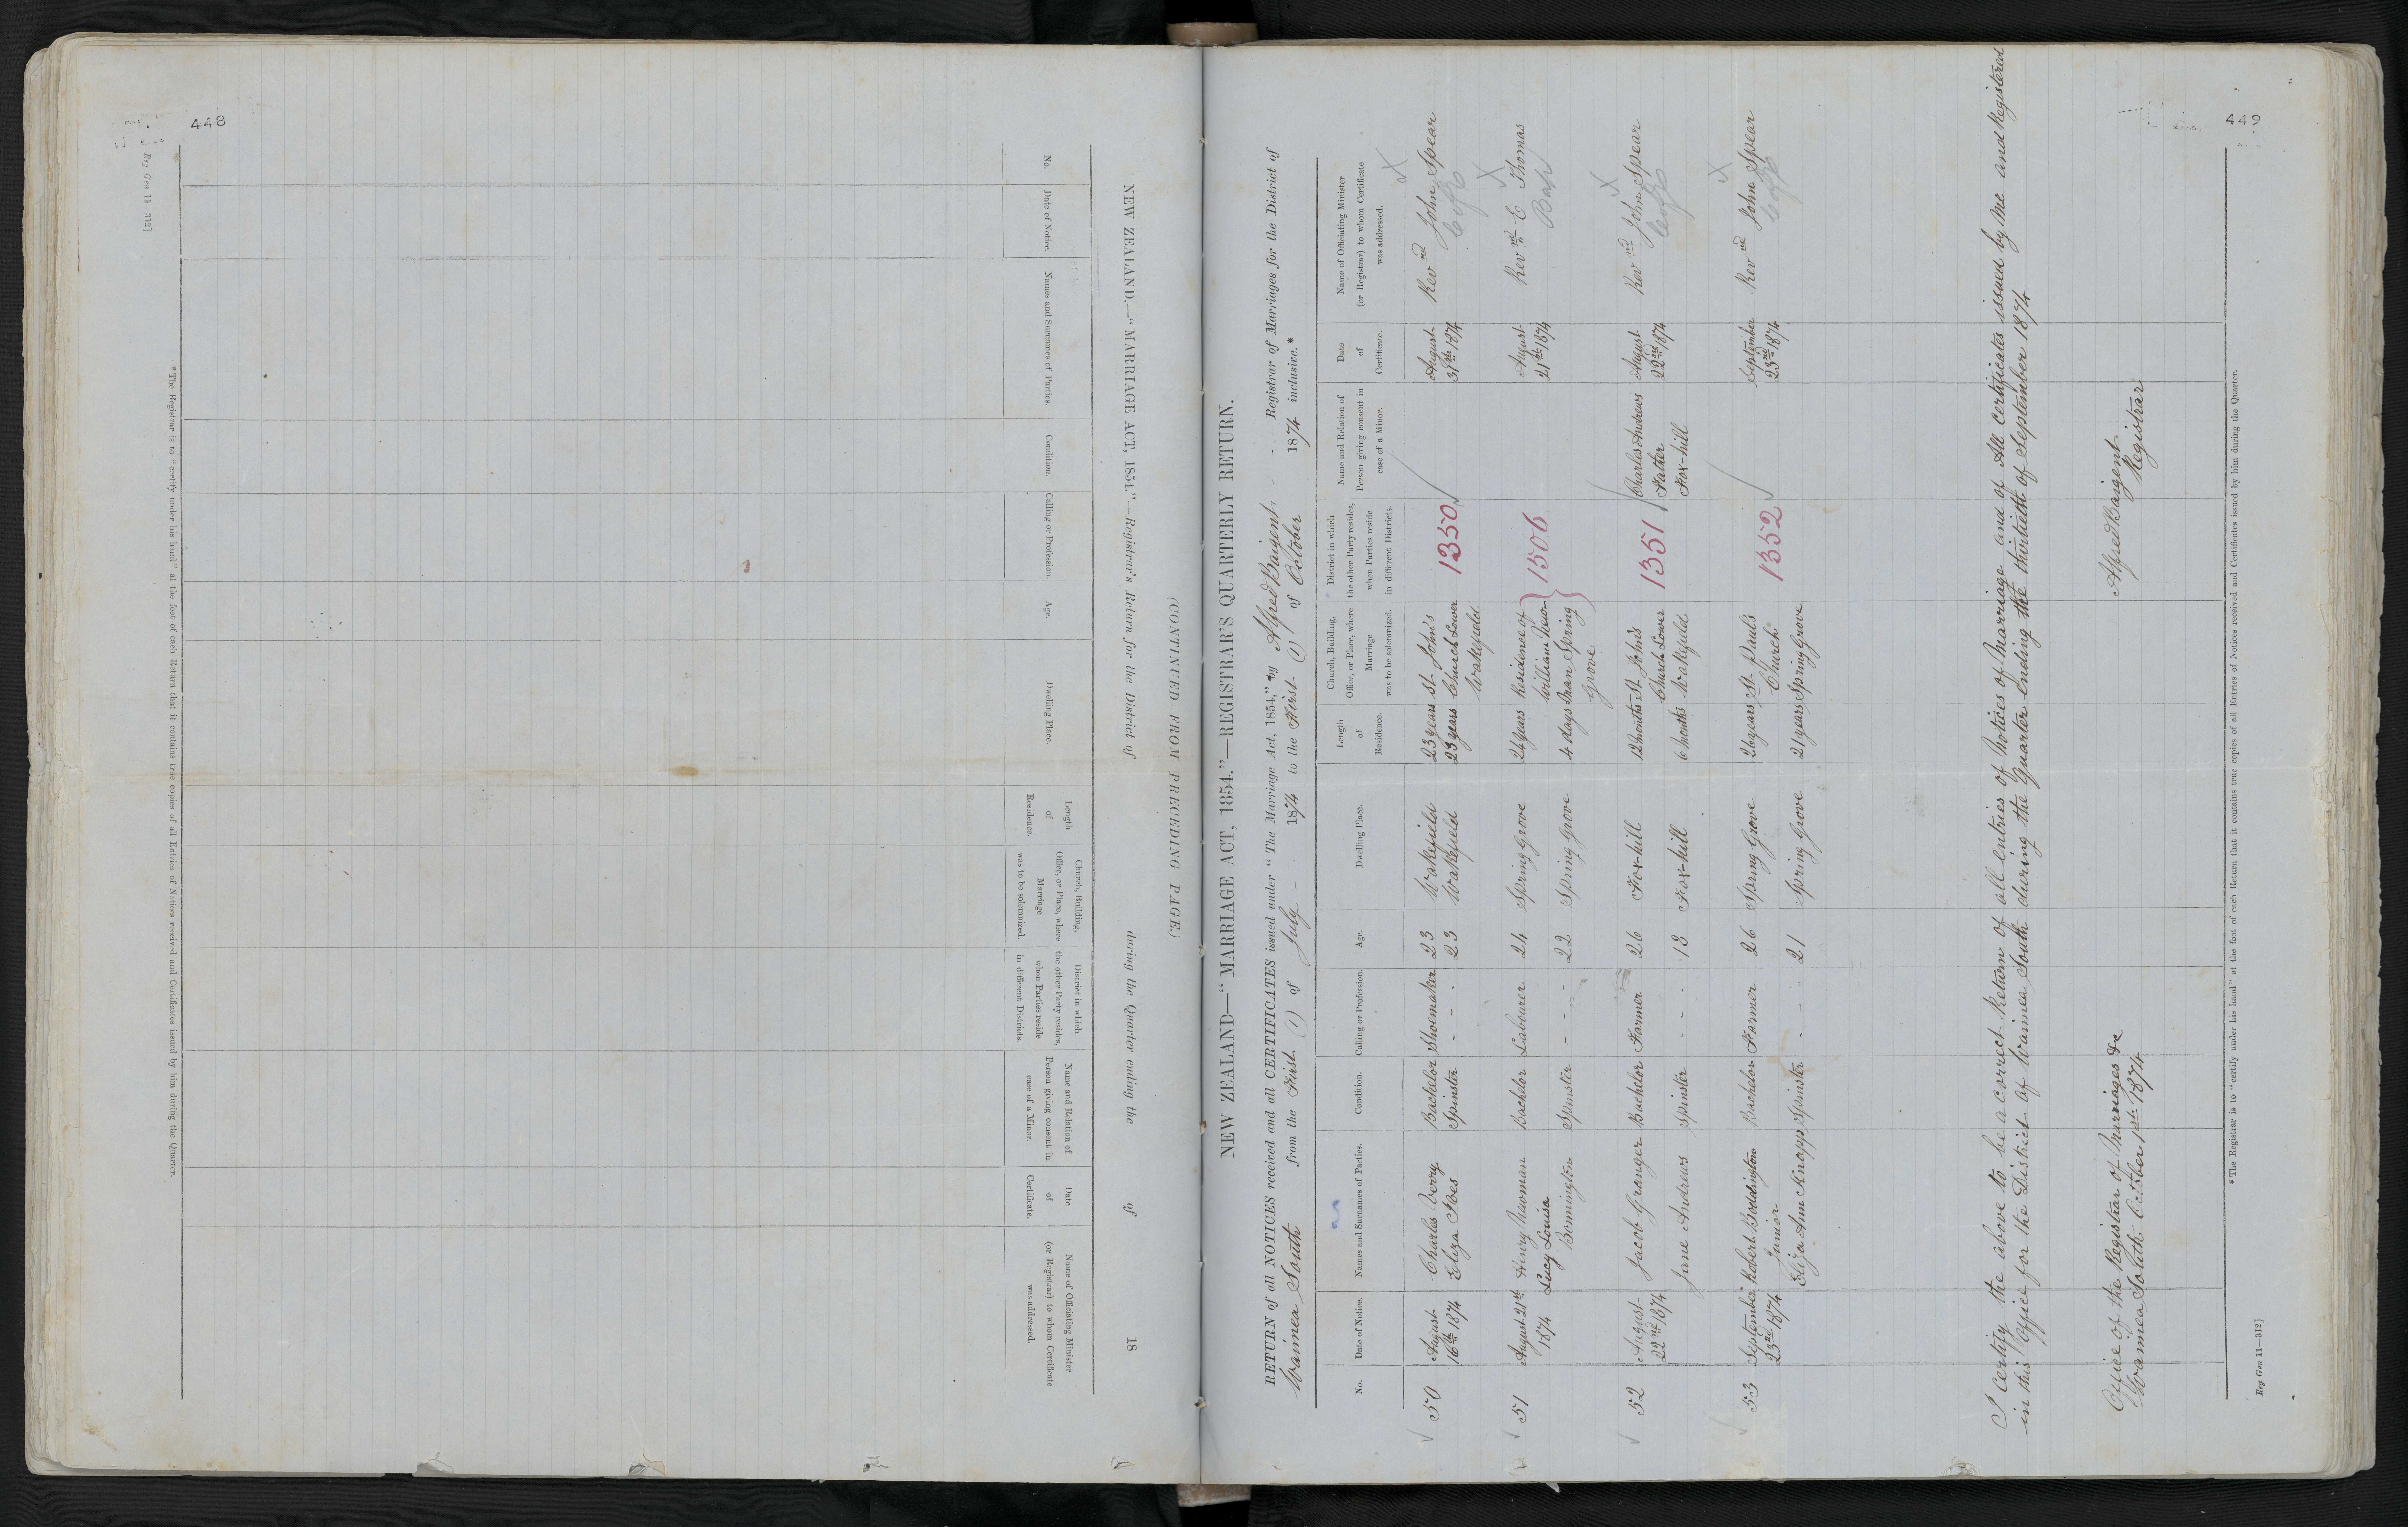 448
Reg Gen 11—312]
NEW ZEALAND.—"MARRIAGE ACT, 1854."—Registrar's Return for the District of during the Quarter ending the of 18
(CONTINUED FROM PRECEDING PAGE.)
No.
Date of Notice.
Names and Surnames of Parties.
Condition.
Calling or Profession.
Age.
Dwelling Place.
Length
of
Residence.
Church, Building,
Office, or Place, where
Marriage
was to be solemnized.
District in which
the other Party resides,
when Parties reside
in different Districts.
Name and Relation of
Person giving consent in
case of a Minor.
Date
of
Certificate.
Name of Officiating Minister
(or Registrar) to whom Certificate
was addressed.
*The Registrar is to "certify under his hand" at the foot of each Return that it contains true copies of all Entries of Notices received and Certificates issued by him during the Quarter.
449
NEW ZEALAND—"MARRIAGE ACT, 1854."—REGISTRAR'S QUARTERLY RETURN.
RETURN of all NOTICES received and all CERTIFICATES issued under "The Marriage Act, 1854," by Alfred Baigent Registrar of Marriages for the District of
Waimea South from the First (1) of July 1874 to the First (1) of October 1874 inclusive.*
No.
Date of Notice.
Names and Surnames of Parties.
Condition.
Calling or Profession.
Age.
Dwelling Place.
Length
of
Residence.
Church, Building,
Office, or Place, where
Marriage
was to be solemnized.
District in which
the other Party resides,
when Parties reside
in different Districts.
Name and Relation of
Person giving consent in
case of a Minor.
Date
of
Certificate.
Name of Officiating Minister
(or Registrar) to whom Certificate
was addressed.
50 August Charles Verry Bachelor Shoemaker 23 Wakefield 23 years St. John's 1350 August Revnd John Spear
16th 1874 Eliza Ives Spinster - - - 23 Wakefield 23 years Church Lower 31st 1874
Wakefield
51 August 21st Henry Newman Bachelor Labourer 24 Spring Grove 24 years Residence of 1506 August Revnd E Thomas
1874 Lucy Louisa William New- 21st 1874 Bap
Bonnington Spinster - - - 22 Spring Grove 4 days man Spring
Grove
52 August Jacob Granger Bachelor Farmer 26 Fox-hill 12 months St. John's 1351 Charles Andrews August Revnd John Spear
22nd 1874 Church Lower Father 22nd 1874
Jane Andrews Spinster - - - 18 Fox-hill 6 months Wakefield Fox-hill
53 September Robert Boddington Bachelor Farmer 26 Spring Grove 26 years St. Paul's 1352 September Revnd John Spear
23rd 1874 Junior Church 23rd 1874
Eliza Ann Knapp Spinster - - - 21 Spring Grove 21 years Spring Grove
I certify the above to be a correct Return of all entries of Notices of Marriage and of All certificates issued by me and Registered
in this Office for the District of Waimea South during the Quarter ending the thirtieth of September 1874
Office of the Registrar of Marriages &c
Waimea South October 1st 1874
Alfred Baigent
Registrar
*The Registrar is to "certify under his hand" at the foot of each Return that it contains true copies of all Entries of Notices received and Certificates issued by him during the Quarter.
Reg Gen 11—312]